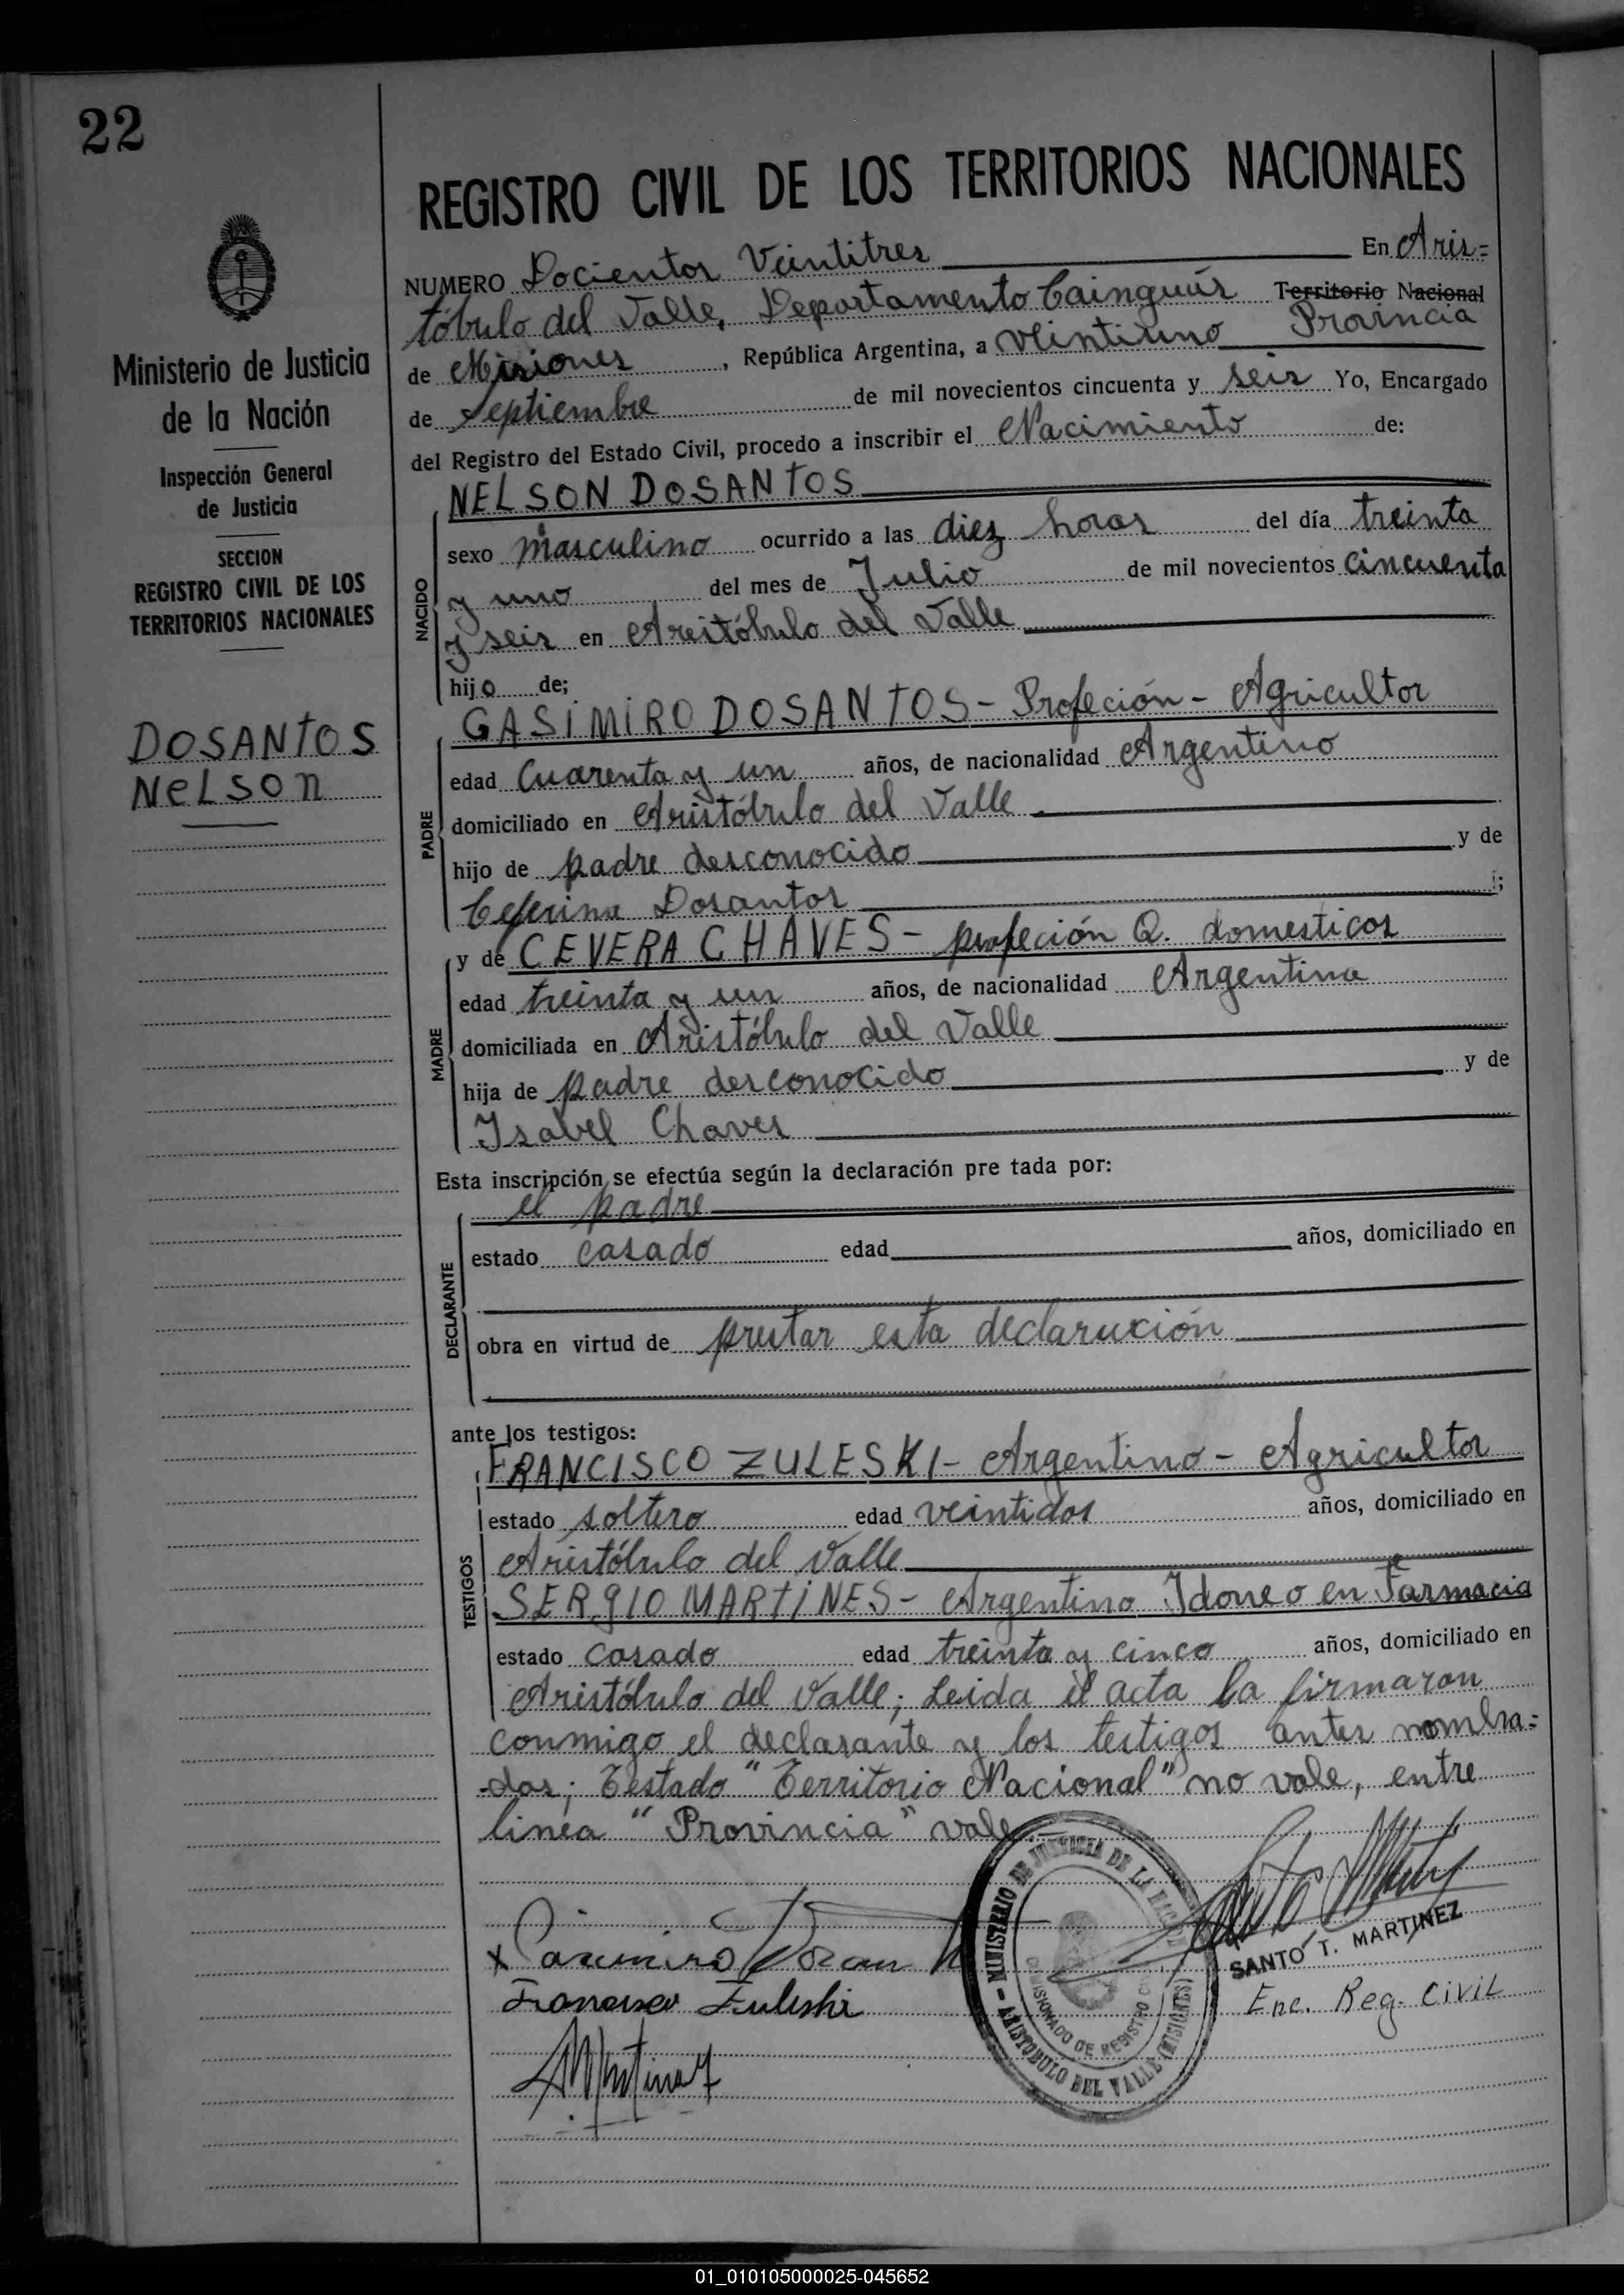 22
Ministerio de Justicia
de la Nación
Inspección General
de Justicia
SECCION
REGISTRO CIVIL DE LOS
TERRITORIOS NACIONALES
DOSANTOS
NELSON
REGISTRO CIVIL DE LOS TERRITORIOS NACIONALES
NUMERO Docientos Veintitres En Aris=
tóbulo del Valle, Departamento Cainguás Territorio Nacional
Provincia
de Misiones, República Argentina, a veintiuno
de septiembre de mil novecientos cincuenta y seis Yo, Encargado
del Registro del Estado Civil, procedo a inscribir el Nacimiento de:
NELSON DOSANTOS
NACIDO
sexo masculino ocurrido a las diez horas del día treinta
y uno del mes de Julio de mil novecientos cincuenta
y seis en Aristóbulo del Valle
hijo de;
GASIMIRO DOSANTOS - Profeción - Agricultor
PADRE
edad Cuarenta y un años, de nacionalidad Argentino
domiciliado en Aristóbulo del Valle
hijo de padre desconocido y de
Ceferina Dosantos ;
y de CEVERA CHAVES - profeción Q. domesticos
MADRE
edad treinta y un años, de nacionalidad Argentina
domiciliada en Aristóbulo del Valle
hija de padre desconocido y de
Isabel Chaves
Esta inscripción se efectúa según la declaración pre tada por:
el padre
DECLARANTE
estado casado edad años, domiciliado en
obra en virtud de prestar esta declaración
ante los testigos:
FRANCISCO ZULESKI - Argentino - Agricultor
TESTIGOS
estado soltero edad veintidos años, domiciliado en
Aristóbulo del Valle
SERGIO MARTINES - Argentino Idoneo en Farmacia
estado casado edad treinta y cinco años, domiciliado en
Aristóbulo del Valle; Leida el acta la firmaron
conmigo el declarante y los testigos antes nombra=
dos; Testado "Territorio Nacional" no vale, entre
linea "Provincia" vale.
MINISTERIO DE JUSTICIA DE LA
COMISIONADO DE REGISTRO
ARISTOBULO DEL VALLE (MISIONES)
x Casimiro
Francisco Zuleski
SANTO T. MARTINEZ
Enc. Reg. Civil
01_010105000025-045652